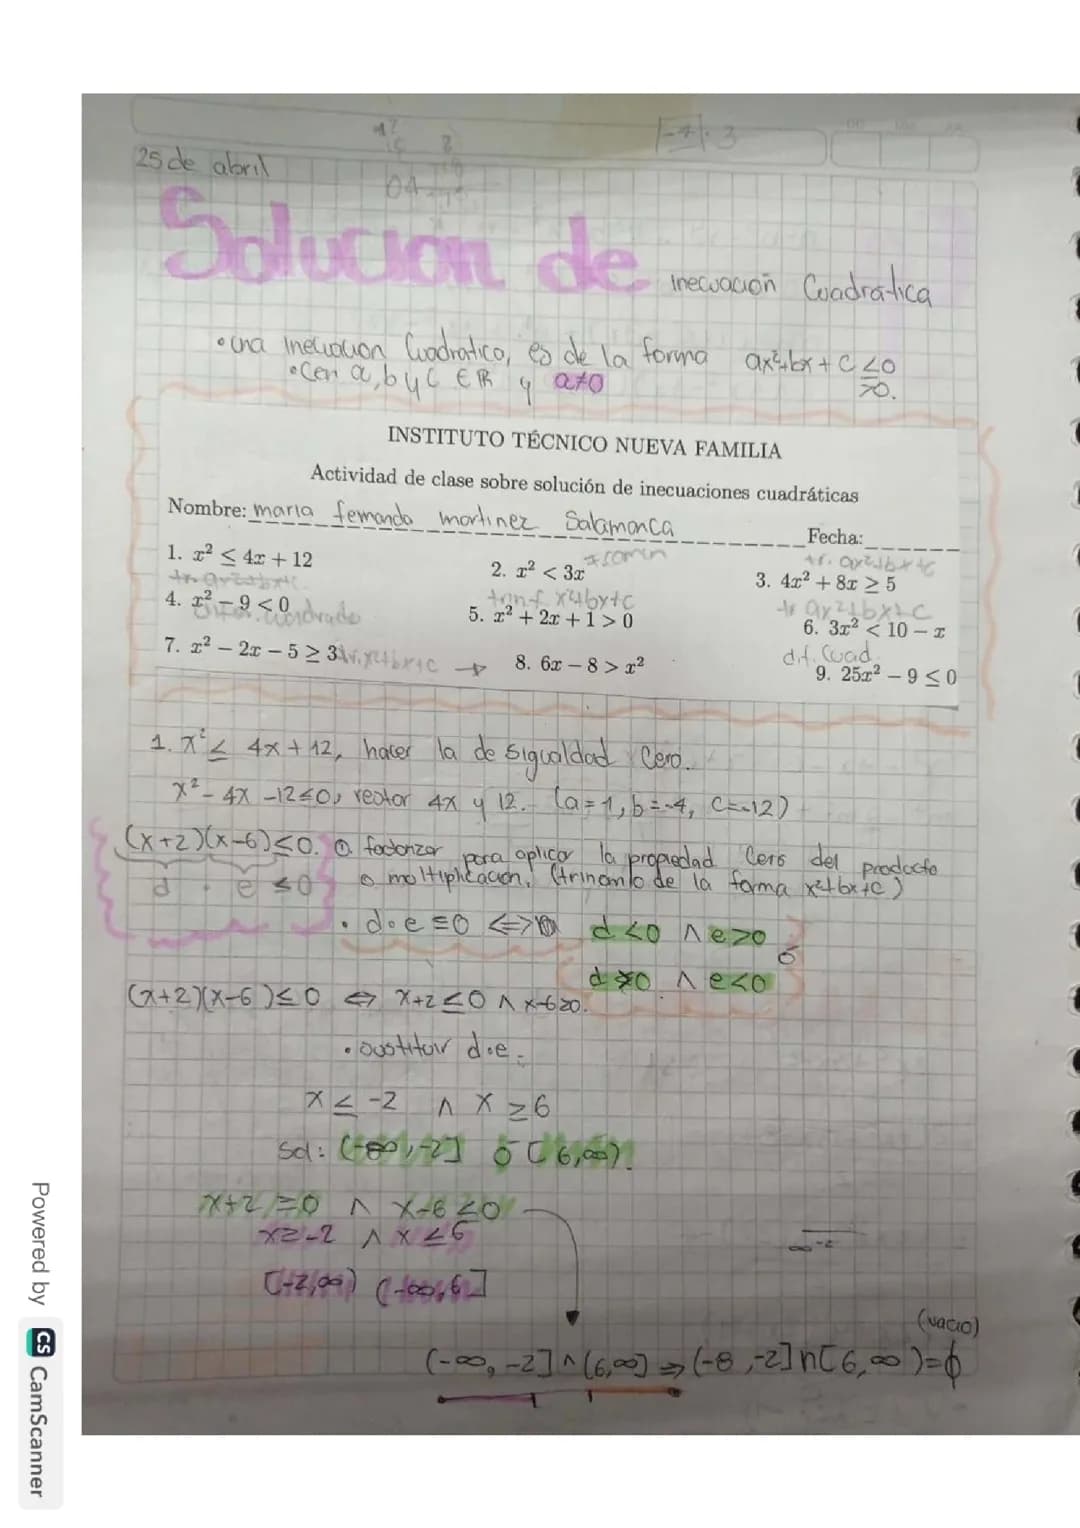 25 de abril
Solucion de Inecuación Cuadratica
• una Inecuacion Cuadratica, es de la forma ax²+bx + C ≤0
• Con a, b y C ∈ ℝ y a≠0 ≥0.
INSTITUTO TÉCNICO NUEVA FAMILIA
Actividad de clase sobre solución de inecuaciones cuadráticas
Nombre: maria fernanda martinez Salamanca Fecha:
1. x² ≤ 4x + 12 2. x² < 3x 3. 4x² + 8x ≥ 5
4. x² − 9 < 0 5. x² + 2x + 1 > 0 6. 3x² < 10 − x
7. x² − 2x − 5 ≥ 3 8. 6x − 8 > x² 9. 25x² − 9 ≤ 0
tr. ax²+bx+c
trin f. x²+bx+c
tr ax²+bx+C
dif. Cuad.
1. x² ≤ 4x + 12, hacer la desigualdad Cero.
x² - 4x -12≤0, restar 4x y 12. (a=1, b=-4, C=-12)
(x+2)(x-6)≤0. factorizar para aplicar la propiedad Cero del producto
d · e ≤0 o moltiplicacion. (trinomio de la forma x²+bx+c)
• d·e ≤0 ⟺ d <0 ∧ e>0 ó
d >0 ∧ e<0
(x+2)(x-6)≤0 ⟺ x+2 ≤0 ∧ x-6≥0.
• Sustituir d·e.
x ≤ -2 ∧ x ≥6
Sol: (-∞, -2] ó [6,∞).
x+2 ≥0 ∧ x-6 ≤0
x≥-2 ∧ x ≤6
[-2,∞) (-∞,6]
∞ -2
(vacio)
(-∞, -2] ∧ (6,∞] ⇒ (-8, -2] ∩ [6, ∞) = ϕ
Powered by CS CamScanner